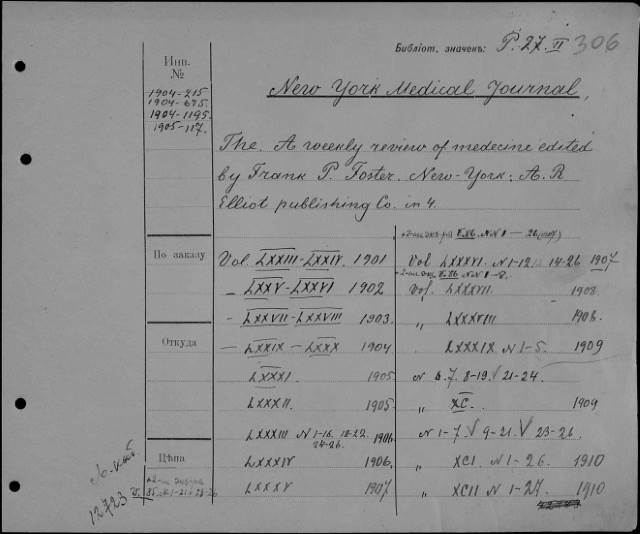 Библіот. значекъ: P. 27. II 306
Инв.
№
1904-215
1904-695.
1904-1195.
1905-117.
New York Medical Journal,
The. A weekly review of medecine edited
by Frank P. Foster. New-York: A. R
Elliot publishing Co. in 4.
По заказу
Откуда
Цѣна
Vol. LXXIII-LXXIV. 1901
– LXXV-LXXVI 1902
- LXXVII-LXXVIII 1903.
– LXXIX – LXXX 1904
LXXXI. 1905
LXXXII. 1905.
LXXXIII N 1-16. 18-22. 1906.
24-26.
LXXXIV 1906.
LXXXV 1907
Vol LXXXVI. N 1-12 14-26 1907
Vol. LXXXVII. 1908
„ LXXXVIII 1908.
„ LXXXIX N 1-5. 1909
N 6. 7. 8-19. V 21-24.
„ XC. 1909
„ N 1-7. V 9-21. V 23-26.
„ XCI. N 1-26. 1910
„ XCII N 1-27. 1910
12723